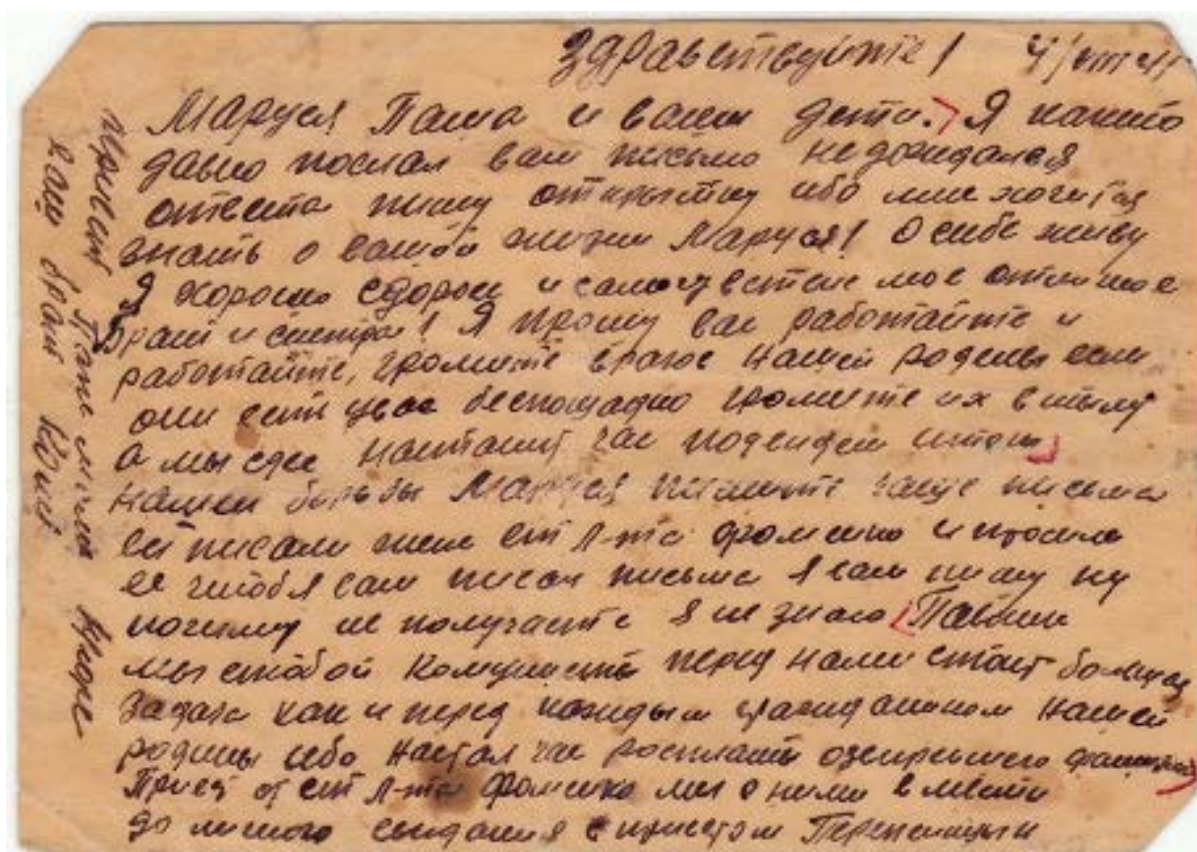 Здравствуйте!
Маруся Паша и ваши дети. Я
давно послал вам письмо недождался
ответа пишу открытку ибо мне хочется
знать о вашей жизни Маруся! О себе живу
Я хорошо здоров и самочувствие мое отличное
Брат и сестра! Я прошу вас работайте и
работайте, громите врагов нашей родины если
они есть увас беспощадно громите их втылу
а мы где настанит час подведем итоги
нашей борьбы Маруся пишите чаще письма
писали жене ст л-та и просили
ее чтобы сам писал письма я сам пишу ну
почему не получаете я не знаю Павлик
мы стобой комунисты перед нами стоит большая
задача как и перед каждым гражданином нашей
родины ибо настал час росплаты озверевшего
Привет от ст л-та Фоменко мы с ними вместе
до личного свидания с приветом
привет Тане
ваш брат